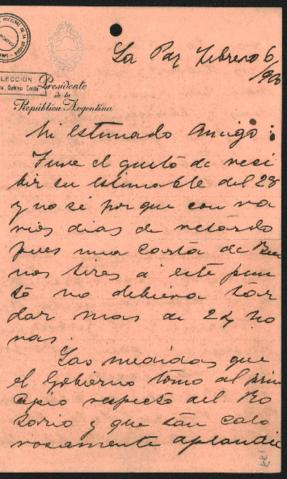 Presidente
de la
República Argentina
La Paz Febrero 6/
Mi estimado Amigo:
Tuve el gusto de reci
bir su estimable del 28
y no sé por que con va
rios dias de retardo
pues una carta de Bue
nos Aires a este pun
to no debiera tar
dar mas de 24 ho
ras
Las medidas que
el Gobierno tomo al prin
cipio respecto del Ro
sario y que tan calo
rosamente aplaudie